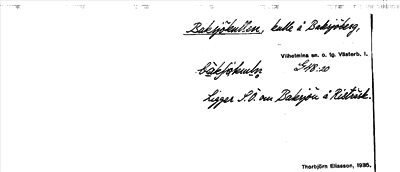 Baksjökullen, kulle å Baksjöberg,
Vilhelmina sn. o. tg. Västerb. l.
Ligger S.Ö. om Baksjön å Ristråsk.
Thorbjörn Eliasson, 1935.